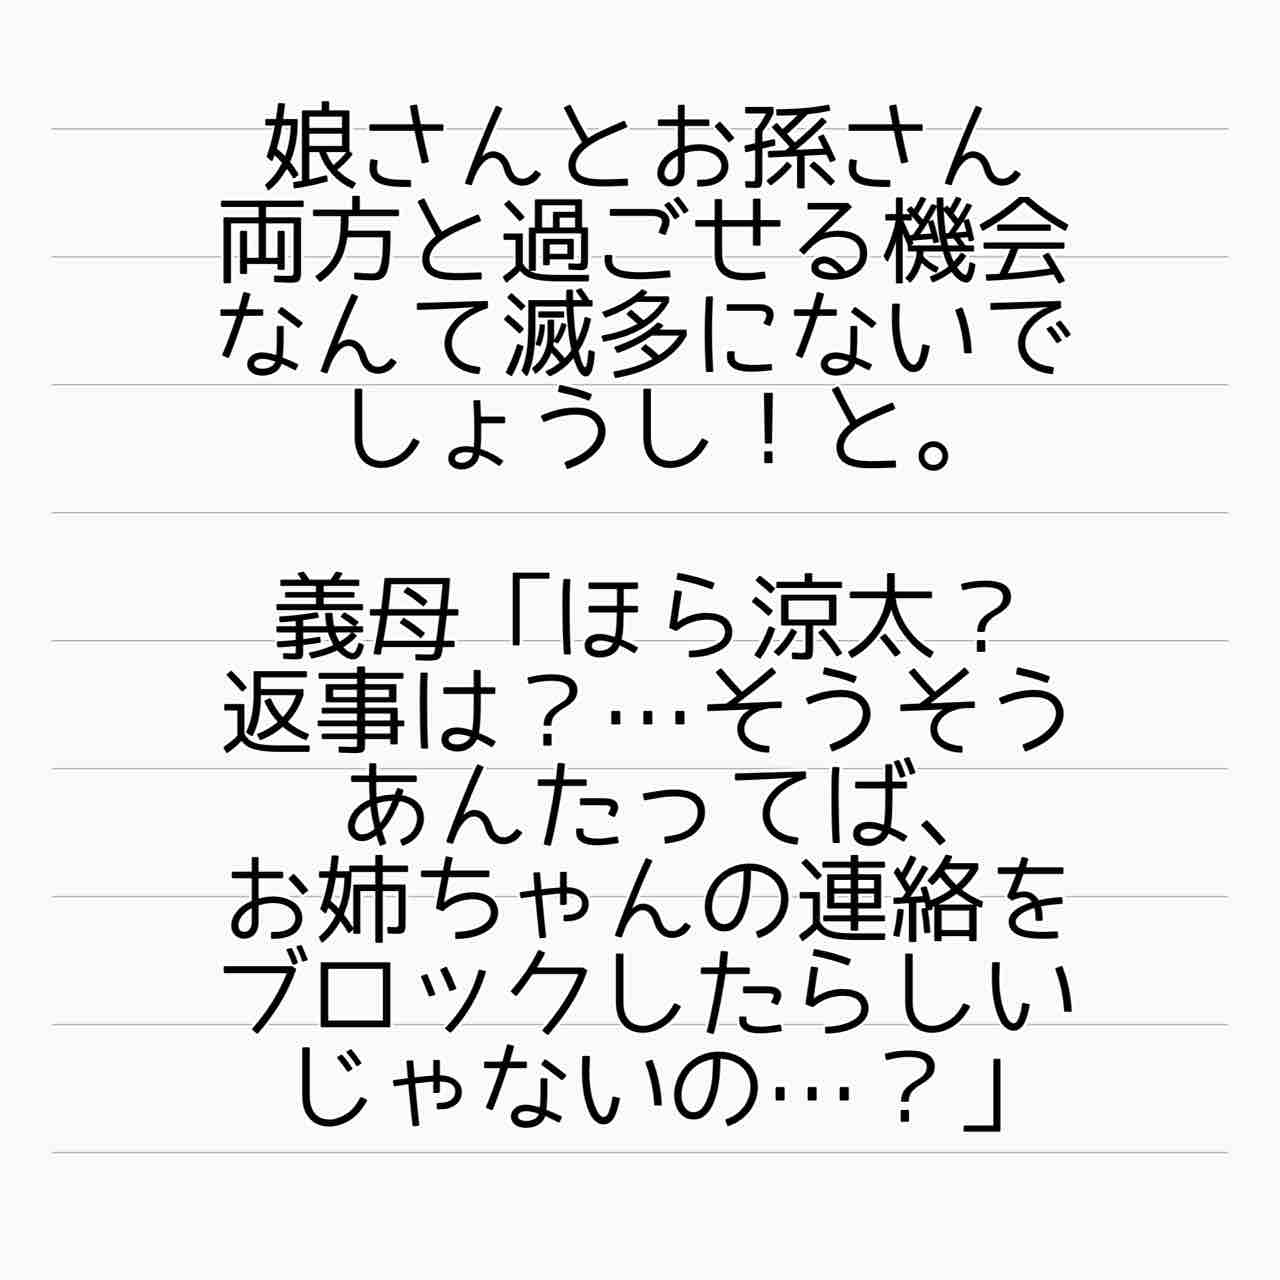 娘さんとお孫さん
両方と過ごせる機会
なんて滅多にないで
しょうし！と。
義母「ほら涼太？
返事は？…そうそう
あんたってば、
お姉ちゃんの連絡を
ブロックしたらしい
じゃないの…？」